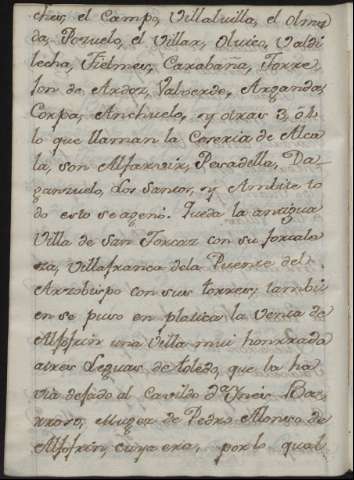 ches, el Campo, Villalvilla, el Olme
da, Pozuelo, el Villar, Olvico, Valdi
lecha, Fielmes, Carabaña, Torre
Jon de Ardoz, Valverde, Arganda,
Corpa, Anchuelo, y otras 3, ó 4.
lo que llaman la Cercria de Alca
la, son Alfarvir, Pesadilla, Da
ganzuelo, Los Santos, y Ambite to
do esto se ageno. Queda la antigua
Villa de San Torcaz con su fortale
za, Villafranca dela Puente del
Arzobispo con sus torres; tambi
en se puso en platica la venta de
Alfofrin una Villa mui honrrada
atres Leguas de toledo, que la ha
via dejado al Cavildo Dª Ynes Ba
rroso, Muger de Pedro Alonso de
Alfofrin, cuya era, por lo qual